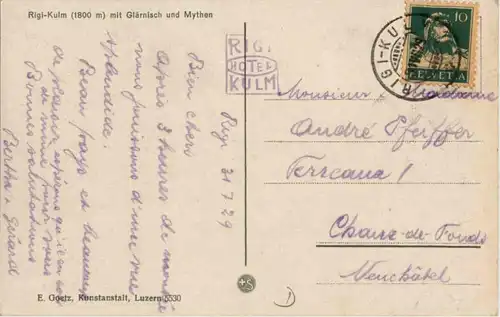 Rigi-Kulm (1800 m) mit Glärnisch und Mythen
RIGI
HOTEL
KULM
RIGI-KULM
10
HELVETIA
Rigi 31 7 29
Bien chers
Après 3 heures de montée
nous jouissons d'une vue
splendide.
Beau pays et beaucoup
de plaisir, espérons qu'il en soit
de même pour vous
Bonnes salutations
Bertha & Gérard
Monsieur & Madame
André Pfeiffer
Terreaux 1
Chaux-de-Fonds
Neuchâtel
E. Goetz, Kunstanstalt, Luzern 5530